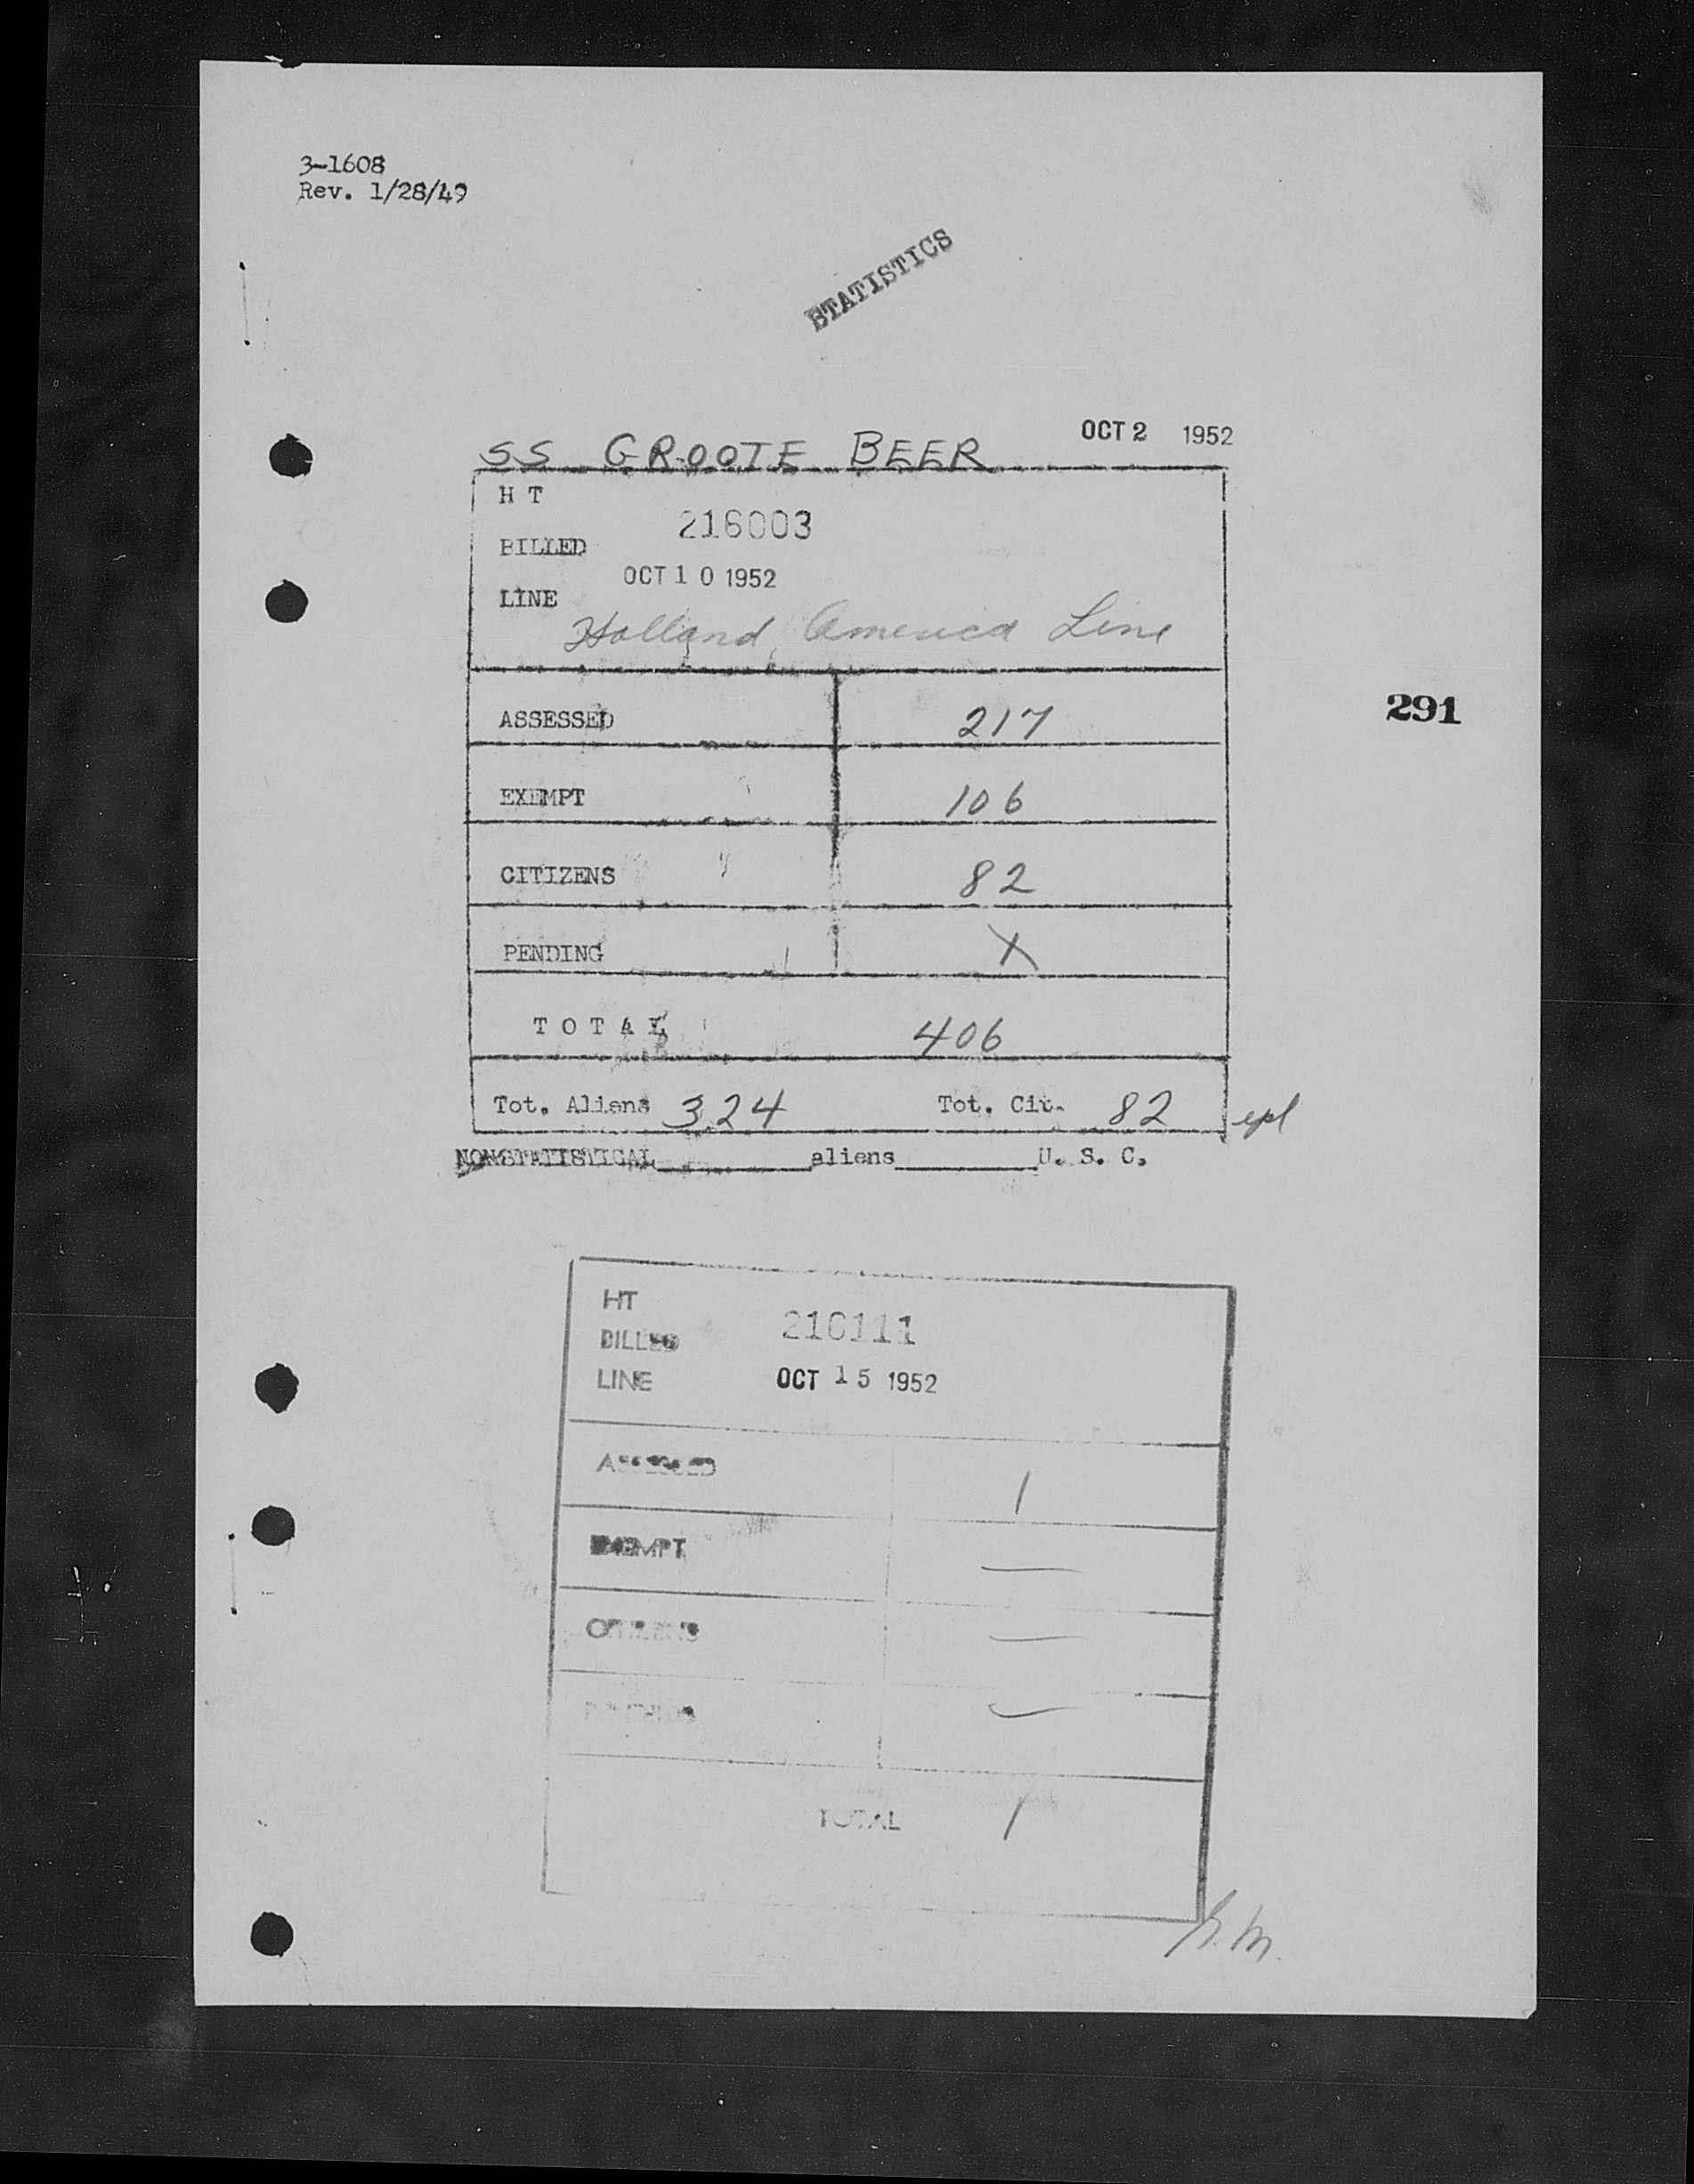 3-1608
Rev. 1/28/49
STATISTICS
OCT 2 1952
SS GROOTE BEER
H T
216003
BILLED
OCT 10 1952
LINE
Holland America Line
291
ASSESSED 217
EXEMPT 106
CITIZENS 82
PENDING X
TOTAL 406
Tot. Aliens 324 Tot. Cit. 82 epl
NONSTATISTICAL aliens U. S. C.
HT
BILLED
LINE OCT 15 1952
ASSESSED 1
EXEMPT —
CITIZENS —
PENDING —
TOTAL 1